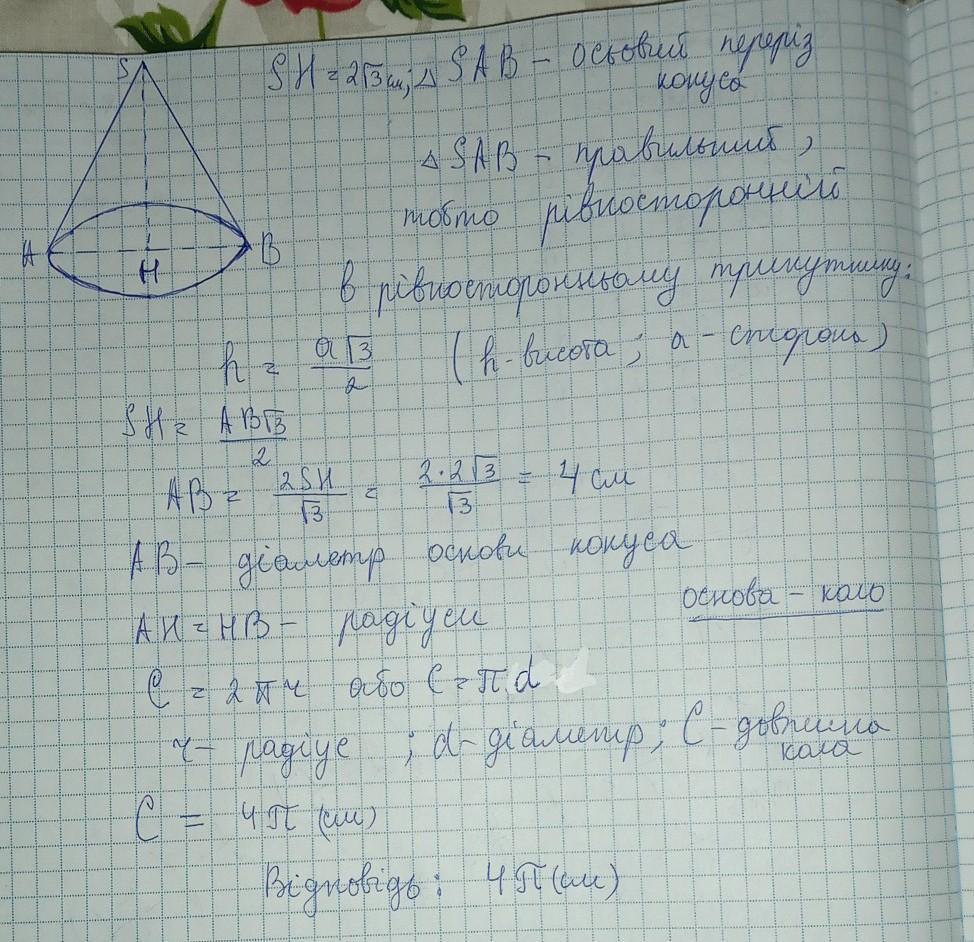 S
A
H
B
SH = 2√3 см; △ SAB – осьовий переріз
конуса
△ SAB – правильний,
тобто рівносторонній
в рівносторонньому трикутнику:
h = a√3/2 (h-висота; a - сторона)
SH = AB√3/2
AB = 2SH/√3 = 2·2√3/√3 = 4 см
AB – діаметр основи конуса
AH = HB – радіуси
основа – коло
C = 2πr або C = πd
r – радіус ; d – діаметр; C – довжина
кола
C = 4π (см)
Відповідь: 4π (см)